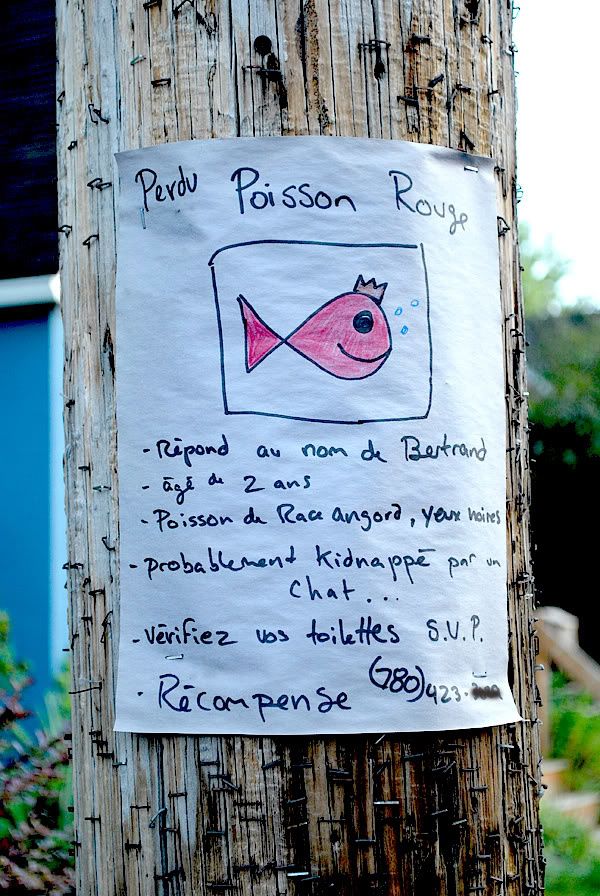 Perdu Poisson Rouge
- Répond au nom de Bertrand
- âgé de 2 ans
- Poisson de Race angord, yeux noires
- probablement kidnappé par un
chat...
- vérifiez vos toilettes S.V.P.
- Récompense (780) 423-